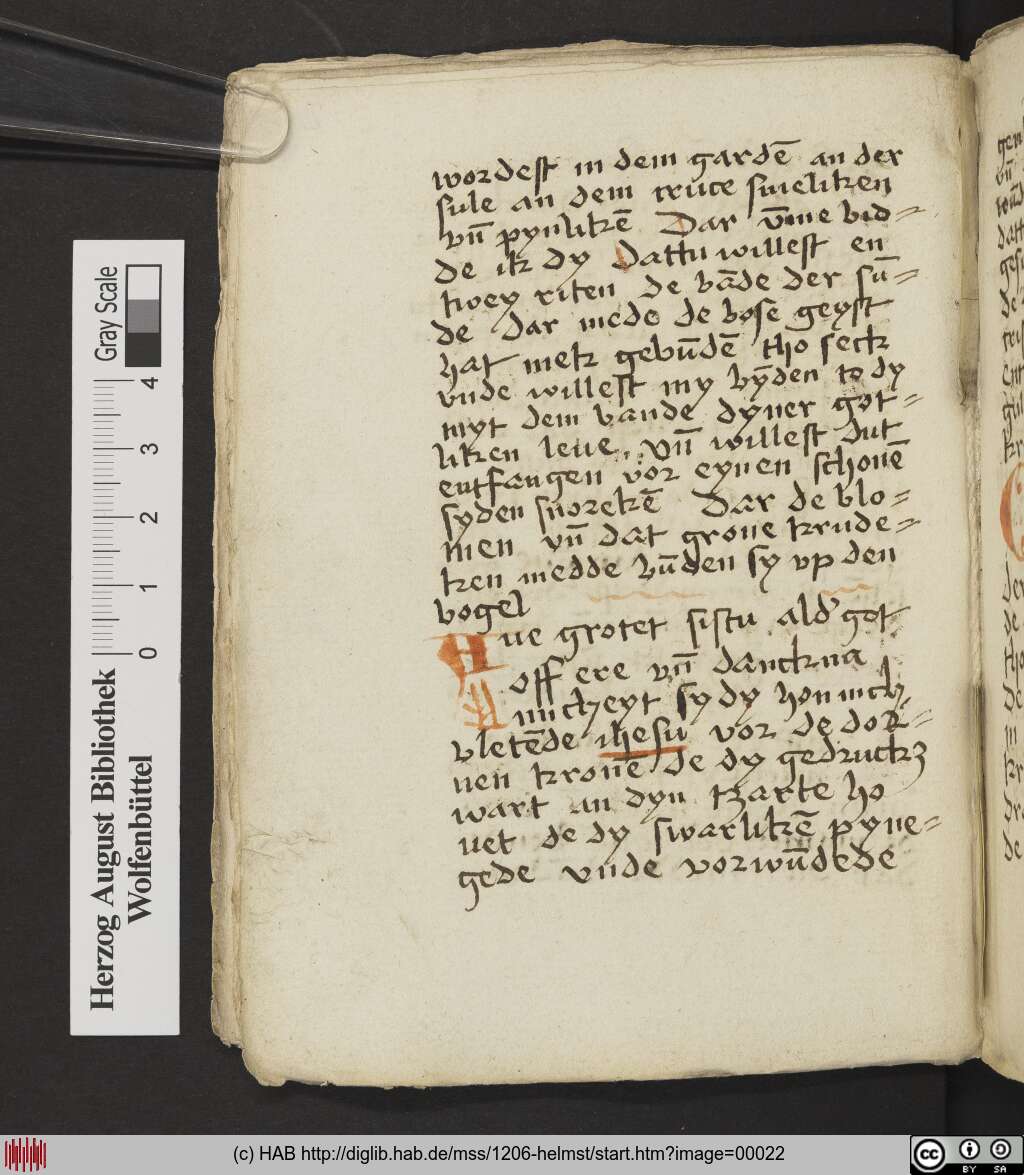 wordest in dem gardē an der
sule an dem cruce smeliken
vn̄ pynlikē Dar v̄me bid=
de ik dy Dattu willest en
twey riten de bāde der sū=
de dar mede de bose geyst
hat mek gebūdē tho seck
vnde willest my bȳden to dy
myt dem bande dyner got=
liken leue, vn̄ willest dut
entfangen vor eynen schonē
syden snorekē Dar de blo=
men vn̄ dat grone krude=
ken medde būden sy vp den
vogel
Aue grotet sistu ald' got
offere vn̄ danckna
micheyt sy dy honnich
vletēde ihesu vor de dor=
nen kronē de dy gedruckz
wart an dyn tzarte ho
uet de dy swarlikē pyne=
gede vnde vorwūdede
Gray Scale
4
3
2
1
0
Herzog August Bibliothek
Wolfenbüttel
(c) HAB http://diglib.hab.de/mss/1206-helmst/start.htm?image=00022
cc
BY SA